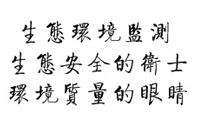 生態環境監測
生態安全的衛士
環境質量的眼睛